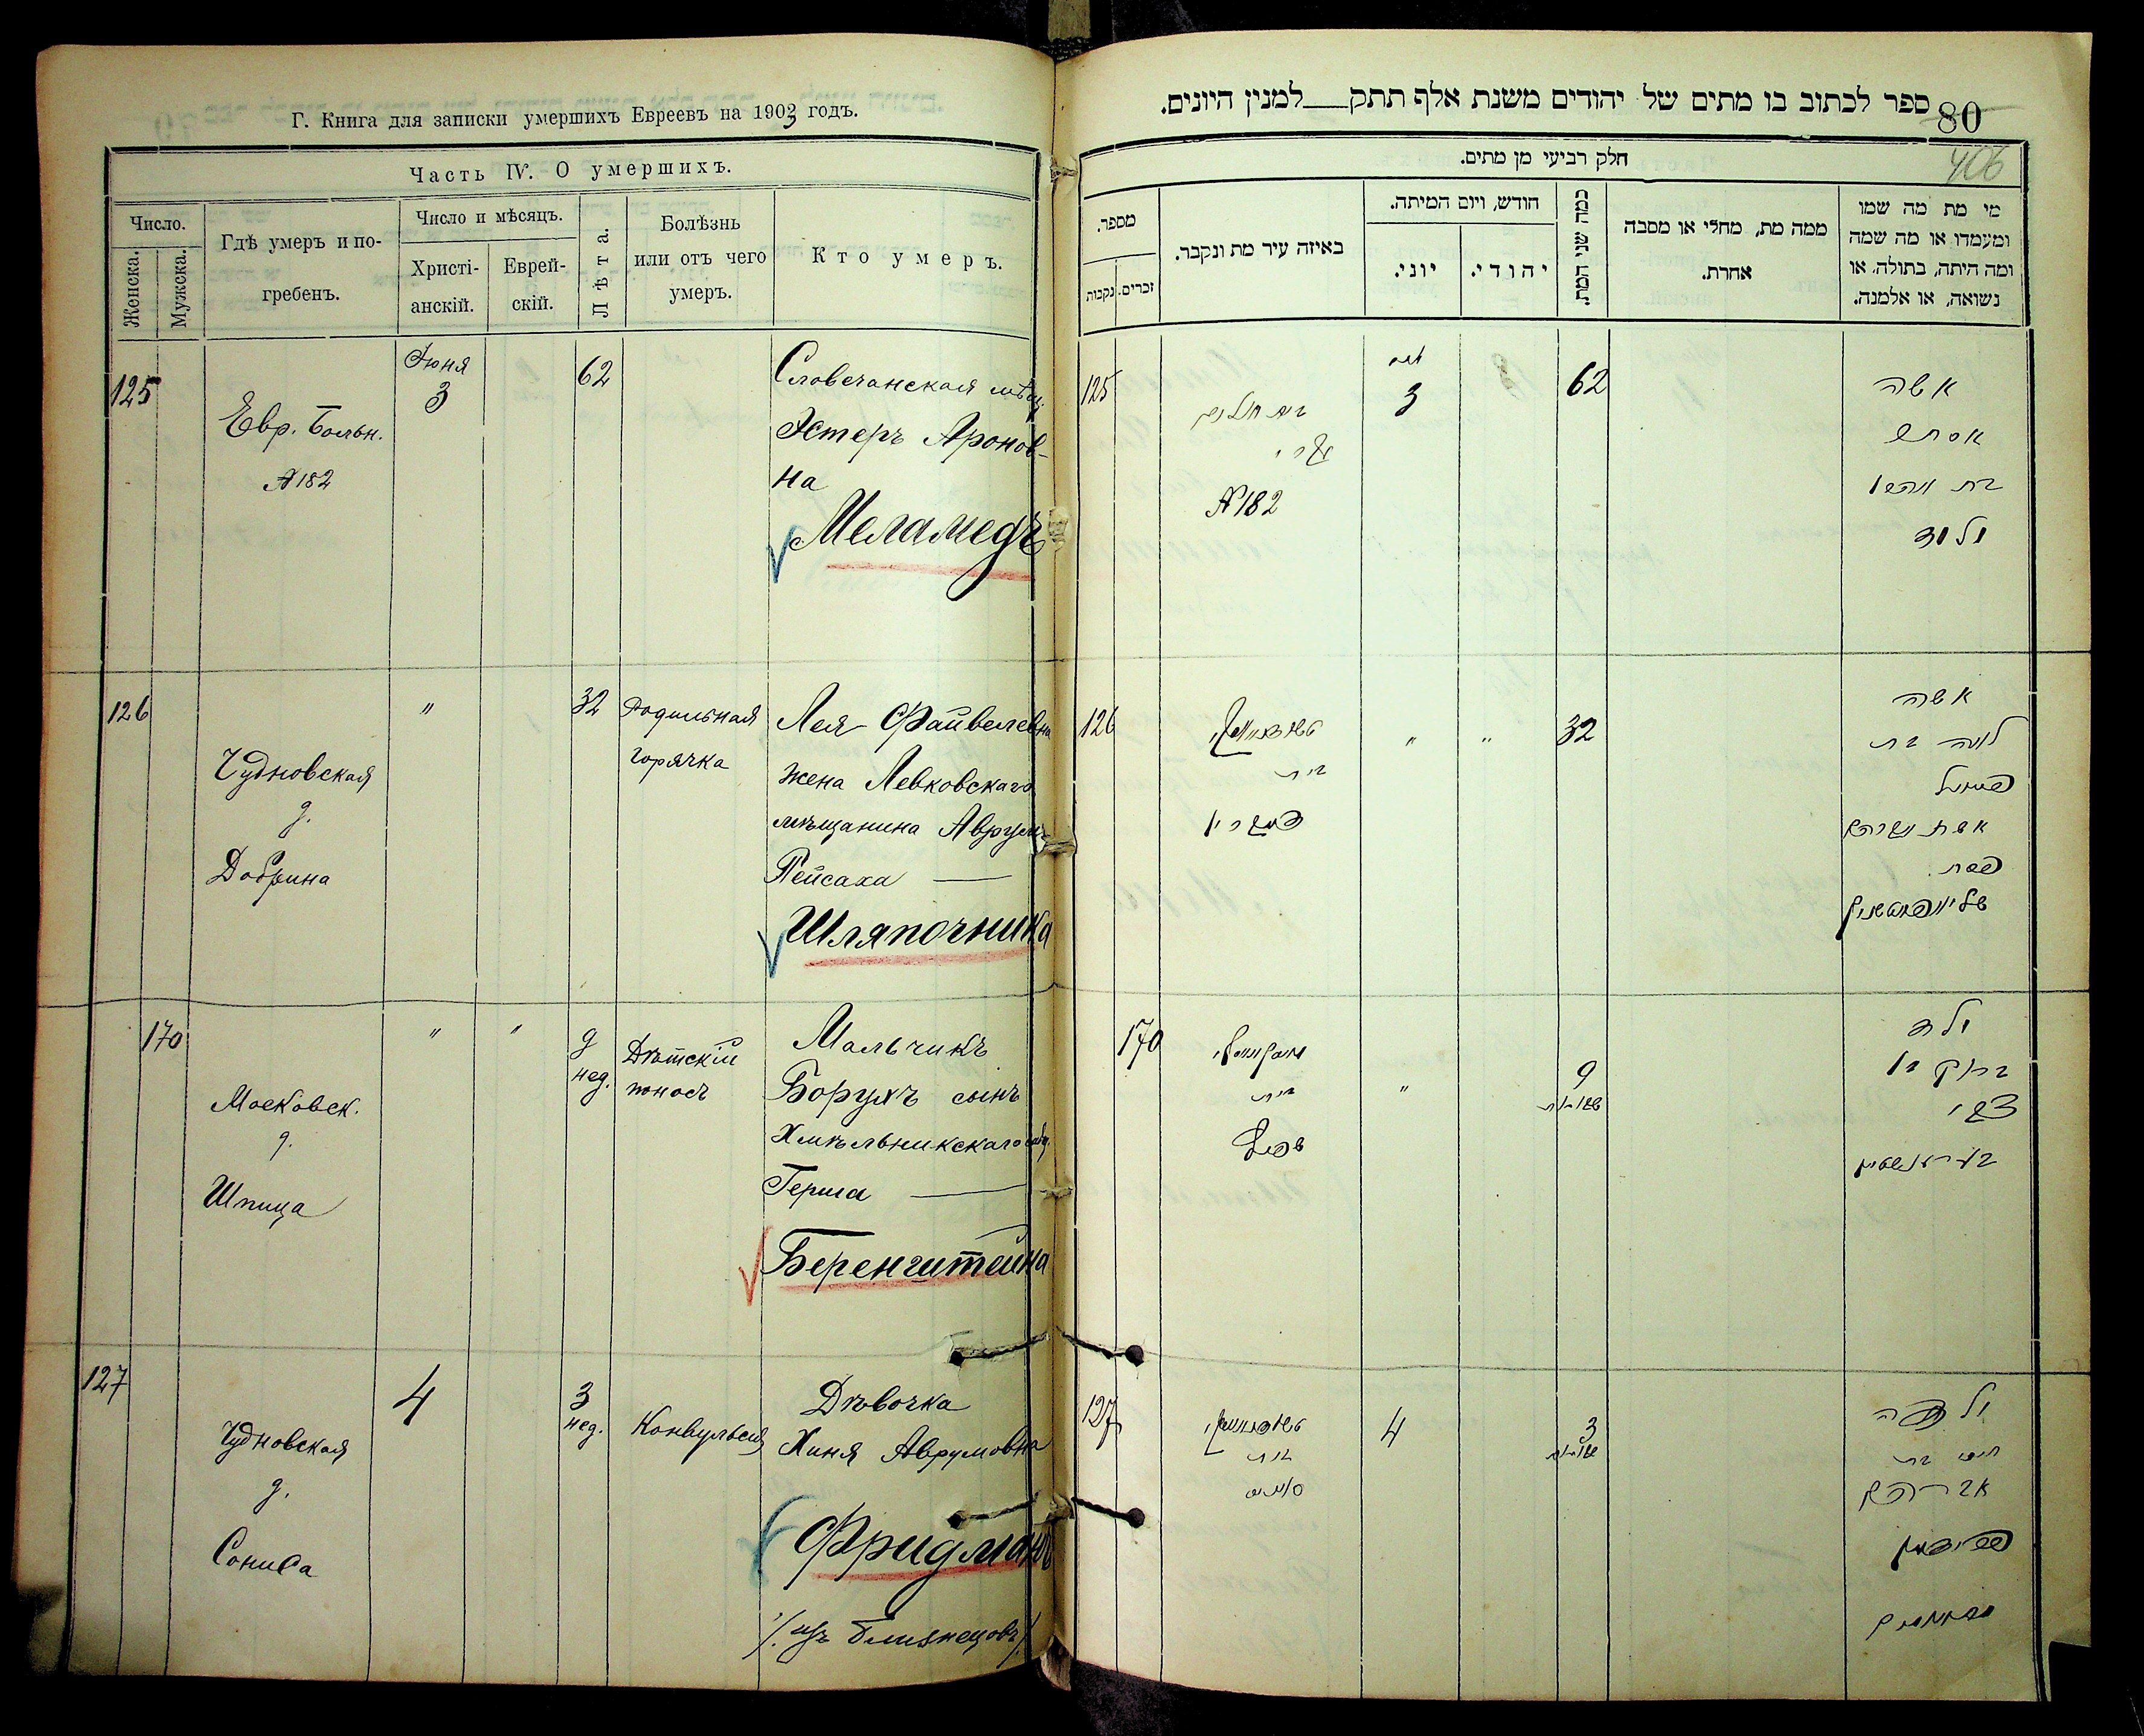 Г. Книга для записки умершихъ Евреевъ на 1903 годъ.
Часть IV. О умершихъ.
Число.
Женска.
Мужска.
Гдѣ умеръ и по-
гребенъ.
Число и мѣсяцъ.
Христі-
анскій.
Еврей-
скій.
Лѣта.
Болѣзнь
или отъ чего
умеръ.
Кто умеръ.
125
Евр. Больн.
№182
Іюня
3
62
Словечанская мѣщ.
Эстеръ Аронов-
на
Меламедъ
126
Чудновская
д.
Добрина
"
32
Родильная
горячка
Лея Файвелевна
жена Левковскаго
мѣщанина Аврумъ-
Пейсаха —
Шляпочника
170
Московск.
д.
Шпица
" "
9
нед.
Дѣтскій
поносъ
Мальчикъ
Борухъ сынъ
Хмѣльникскаго мѣщ.
Герша —
Беренштейна
127
Чудновская
д.
4
3
нед.
Конвульсія
Дѣвочка
Хиня Аврумовна
Фридманъ
/. изъ близнецовъ ./
80
406
ספר לכתוב בו מתים של יהודים משנת אלף תתק___למנין היונים.
חלק רביעי מן מתים.
מספר.
נקבות
זכרים.
באיזה עיר מת ונקבר.
חודש, ויום המיתה.
יוני.
יהודי.
כמה שני המת.
ממה מת, מחלי או מסבה
אחרת.
מי מת מה שמו
ומעמדו או מה שמה
ומה היתה, בתולה. או
נשואה, או אלמנה.
125
№182
3
62
אשה
אסתר
126
בית
" "
32
אשה
לאה בת
פייוול
אשת אברהם
פסח
170
בית
שפיץ
"
9
ילד
ברוך בן
צבי
בערענשטיין
127
בית
4
3
ילדה
אברהם
פרידמאן